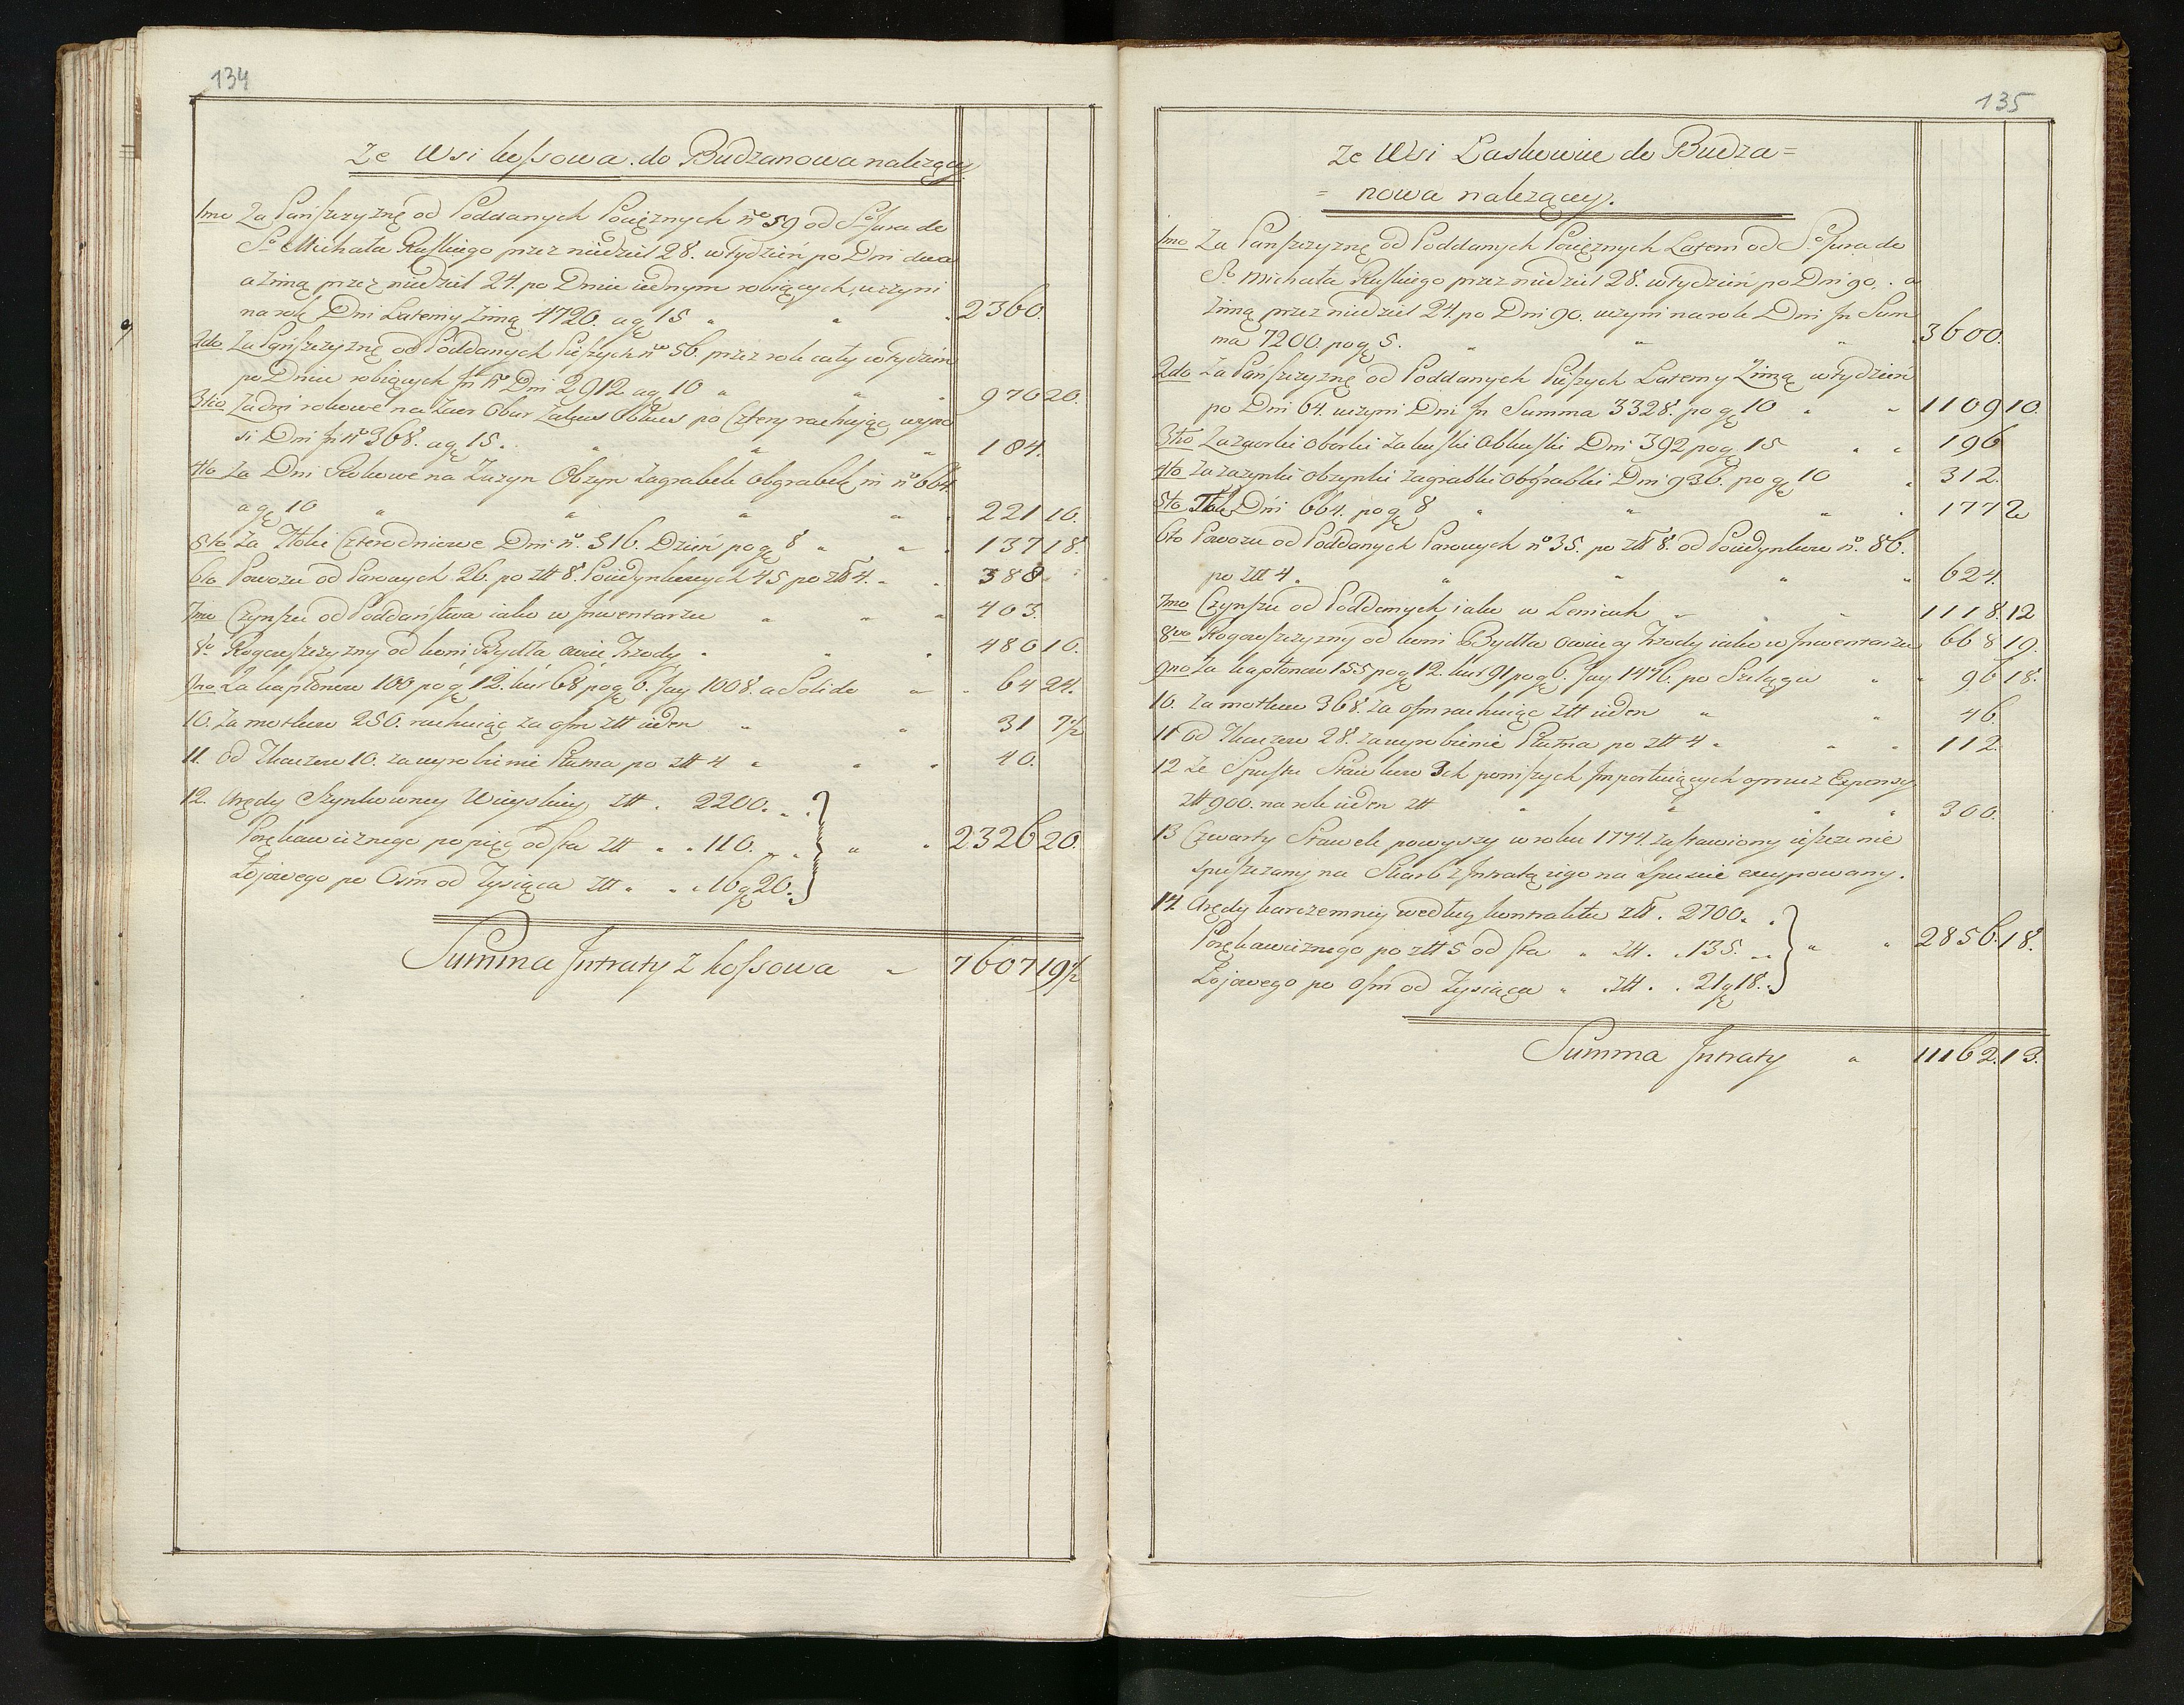 134
Ze Wsi Kossowa do Budzanowa należący
1mo Za Pańszczyznę od Poddanych Pociężnych No 59 od So Jura do
So Michała Ruskiego przez niedziel 28. w tydzień po Dni dwa
a zimą przez niedziel 24. po Dniu iednym robiących, uczyni
na rok Dni Latem y Zimą 4720. a gr 15 " " 2360.
2do Za Pańszczyznę od Poddanych Pieszych no 56. przez rok cały w tydzień
po Dniu robiących In No Dni 2912 a gr 10 " " " 970 20.
3tio Za dni rokowe na Zaor Obor Zakos Obkos po Cztery rachując wyno
si Dni In No 368. a gr 15. " " " 184.
4to Za Dni Rokowe na Zażyn Obżyn Zagrabek Obgrabek in no 664
a gr 10 " " " " 221 10.
5to Za Tłoki Czterodniowe Dni no. 516. Dzień po gr 8 " " 137 18.
6to Powozu od Parowych 26. po zł 8. Poiedynkowych 45 po zł 4. " 388
7mo Czynszu od Poddaństwa iako w Inwentarzu " " " 403.
8o Rogowszczyzny od koni Bydła Owiec Trzody " " " 480 10.
9no Za kapłonow 100 po gr 12. kur 68 po gr 6. Jay 1008. a Solido " " 64 24.
10. Za motkow 250. rachuiąc za osm zł ieden " " 31 7½
11. Od Tkaczow 10. za wyrobienie Płutna po zł 4 " " " 40.
12. Arędy Szynkowney Wieyskiey zł . 2200. " .
Porękawicznego po pięć od sta zł " " 110. " " " " 2326 20.
Łojowego po Osm od Tysiąca zł " " " 16 gr 20.
Summa Intraty z Kossowa " 7607 19½
135
Ze Wsi Laskowiec do Budza=
= nowa należącey.
1mo Za Pańszczyznę od Poddanych Pociężnych Latem od So Jura do
So Michała Ruskiego przez niedziel 28. w tydzień po Dni 90. a
Zimą przez niedziel 24. po Dni 90. uczyni na rok Dni In Sum
ma 7200. po gr 5. " " " 3600.
2do Za Pańszczyznę od Poddanych Pieszych Latem y Zimą w tydzień
po Dni 64. uczyni Dni In Summa 3328. po gr 10 " " 1109 10.
3tio Za Zaorki Oborki Zakoski Obkoski Dni 392 po gr 15 " " 196
4to Za zażynki obżynki zagrabki obgrabki Dni 936. po gr 10 " 312.
5to Tłok Dni 664. po gr 8 " " " " 177 2
6to Powozu od Poddanych Parowych no 35. po zł 8. od Poiedynkow no. 86.
po zł 4. " " " " 624.
7mo Czynszu od Poddanych iako w Leniech " " 1118. 12
8vo Rogowszczyzny od koni Bydła Owiec y Trzody iako w Inwentarzu 668 19.
9no Za kapłonow 155 po gr 12. kur 91 po gr 6. Jay 1476. po Szelągu " " 96 18.
10. Za motkow 368. za osm rachuiąc zł ieden " " 46.
11 Od Tkaczow 28. za wyrobienie Płutna po zł 4 " " " 112.
12 Ze Spustu Stawkow 3ch poniższych Importuiących oprucz Expensy
zł 900. na rok ieden zł " " " " 300.
13 Czwarty Stawek powyższy w roku 1774. zastawiony ieszcze nie
spuszczany na Skarb z Intratą iego na Spuście excypowany.
14. Arędy karczemney według kontraktu zł . 2700. " .
Porękawicznego po zł 5 od sta " zł . " 135. " " " " 2856. 18.
Łojowego po osm od Tysiąca " " zł . " 21 gr 18.
Summa Intraty " 11162. 13.